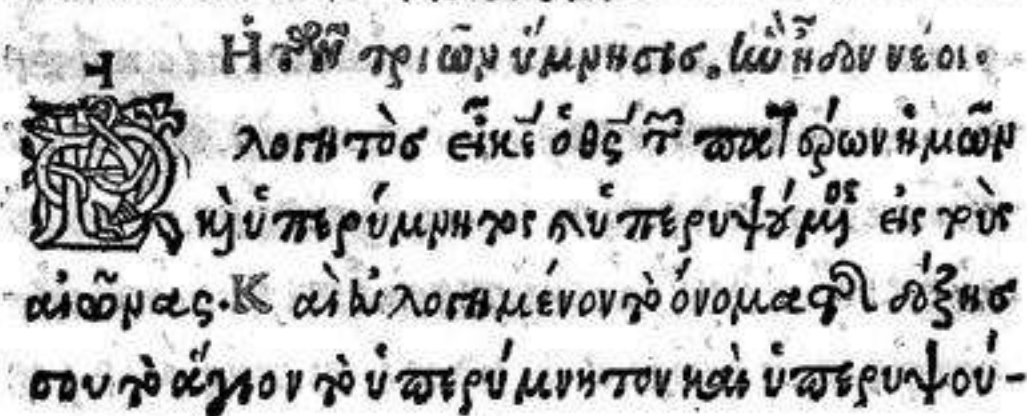 η
Ἡ τῶν τριῶν ὕμνησις. ὠδὴ
λογητὸς εἶ κε ὁ θς τ πατρων ἡμῶν
καὶ ὑπερύμνητος καὶ ὑπερυψούμενος εἰς τοὺς
αἰῶνας. Καὶ εὐλογημένον τὸ ὄνομα τῆς δόξης
σου τὸ ἅγιον τὸ ὑπερύμνητον καὶ ὑπερυψού-